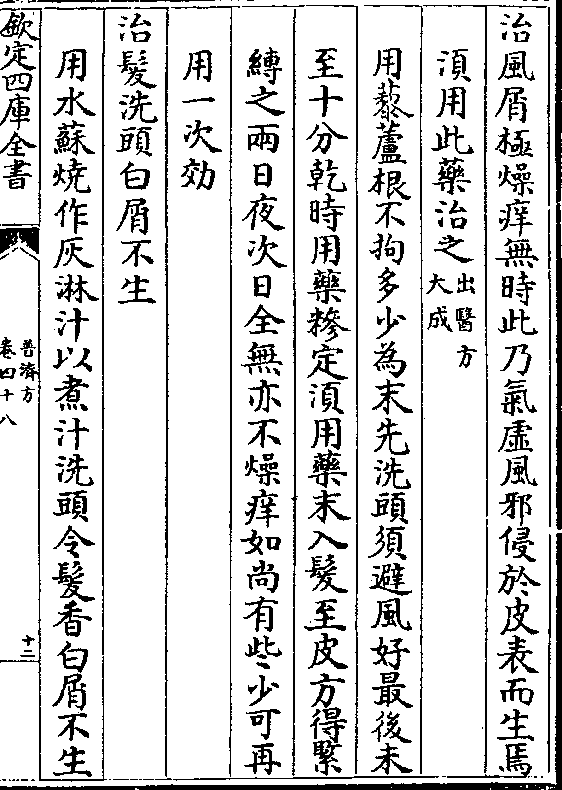 治風屑極燥痒無時此乃氣虛風邪侵於皮表而生焉
湏用此藥治之出醫方大成
用藜蘆根不拘多少為末先洗頭須避風好最後未
至十分乾時用藥糝定湏用藥末入髮至皮方得緊
縳之兩日夜次日全無亦不燥痒如尚有些少可再
用一次効
治髮洗頭白屑不生
用水蘇燒作灰淋汁以煮汁洗頭令髮香白屑不生
欽定四庫全書
普濟方
卷四十八
十二